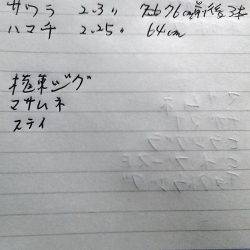 サワラ 2.3〃 75676cm前後3本
ハマチ 2.25〃 64cm
極東ジグ
マサムネ
ステイ